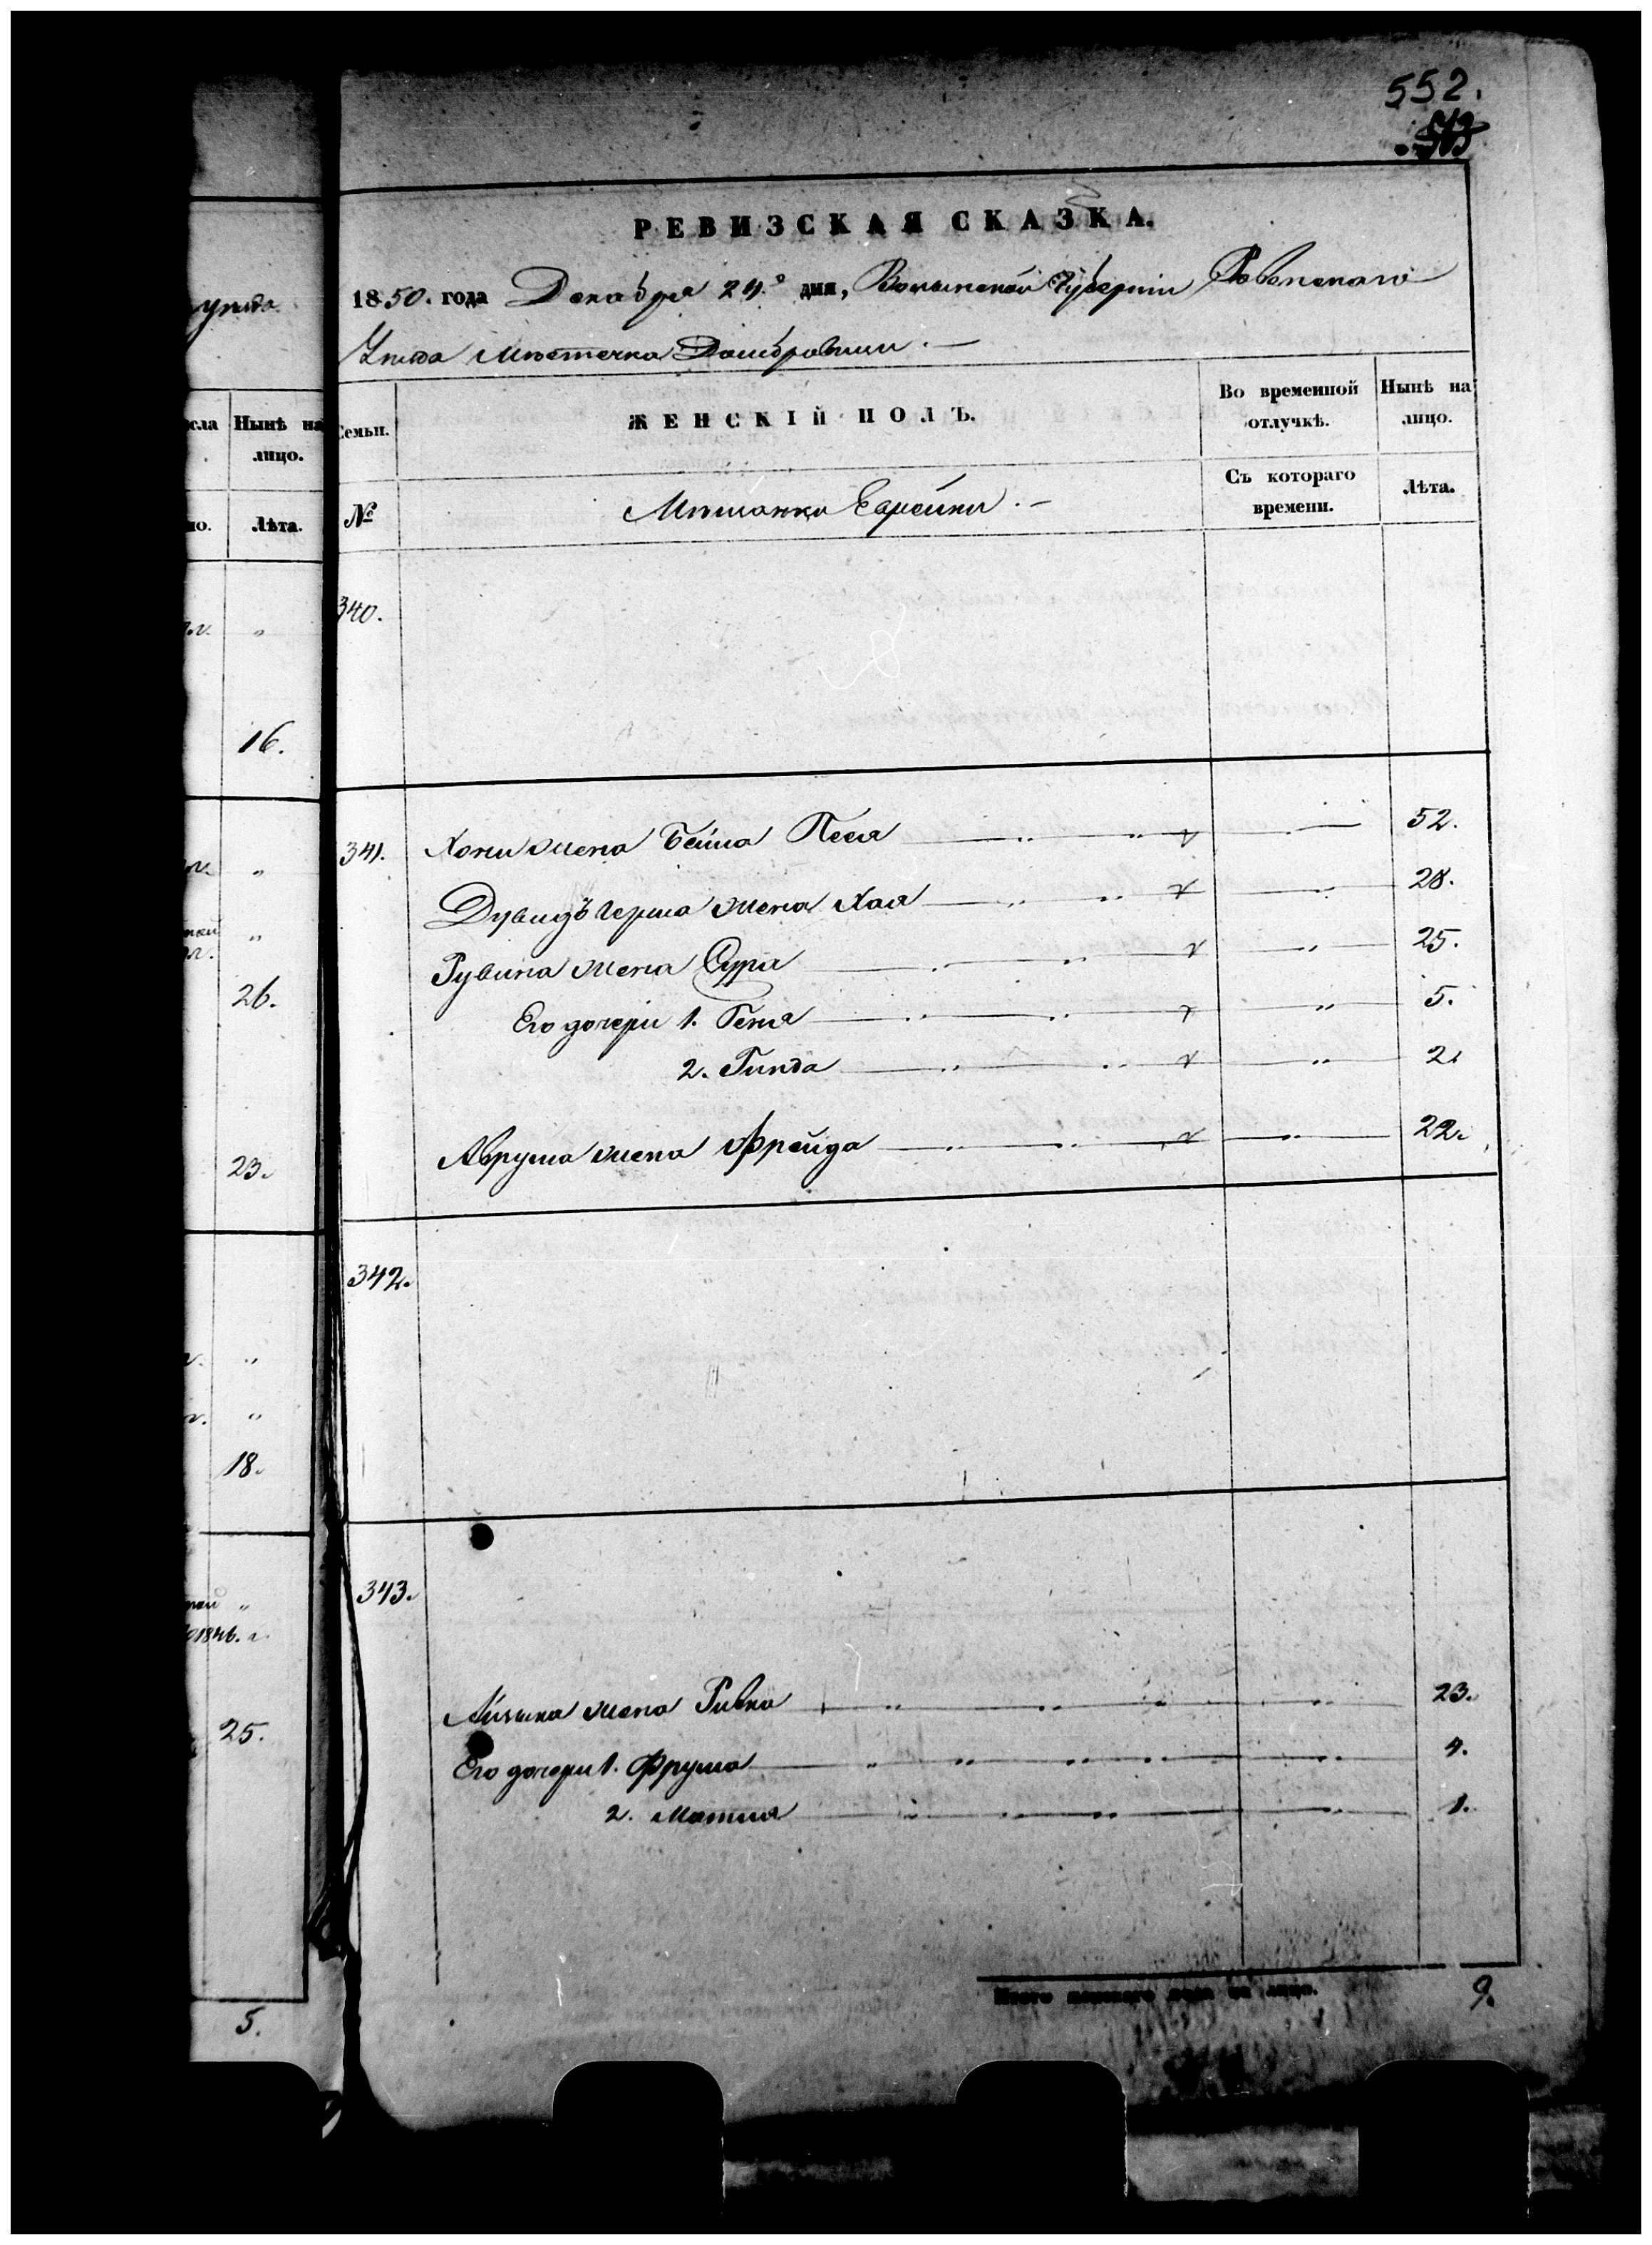 552.
РЕВИЗСКАЯ СКАЗКА.
1850. года Декабря 24.º дня, Волынской Губерніи Ровенского
Уѣзда Мѣстечка Домбровици.
уѣзда.
Нынѣ на лицо.
Лѣта.
Семьи.
№
ЖЕНСКІЙ ПОЛЪ.
Мѣщанки Еврейки.
Во временной отлучкѣ.
Съ котораго времени.
Нынѣ на лицо.
Лѣта.
340.
16.
341. Хони жена Бейла Песя 52.
Дувидъ Герша жена Хая 28.
Рувина жена Сура 25.
26.
Его дочери 1. Геня 5.
2. Гинда 2.
Аврума жена Фрейда 22.
23.
342.
18.
343.
1846. г.
Айзика жена Ривка 23.
25.
Его дочери 1. Фрума 4.
2. Матля 1.
Итого женского пола на лицо. 9.
5.